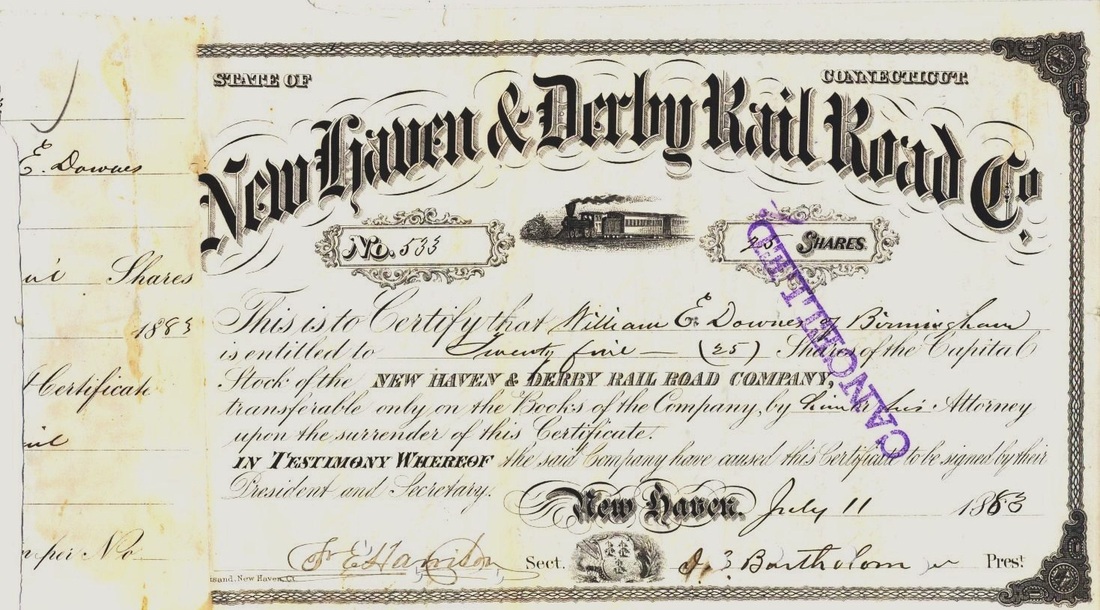 E. Downes
Shares
1883
Certificate
per No
STATE OF CONNECTICUT.
New Haven & Derby Rail Road Co.
No. 533
25 SHARES
CANCELLED
This is to Certify that William E. Downes of Birmingham
is entitled to Twenty five — (25) Shares of the Capital
Stock of the NEW HAVEN & DERBY RAIL ROAD COMPANY,
transferable only on the Books of the Company, by him or his Attorney
upon the surrender of this Certificate.
IN TESTIMONY WHEREOF the said Company have caused this Certificate to be signed by their
President and Secretary.
New Haven, July 11 1883
Sect. Prest
New Haven, Ct.